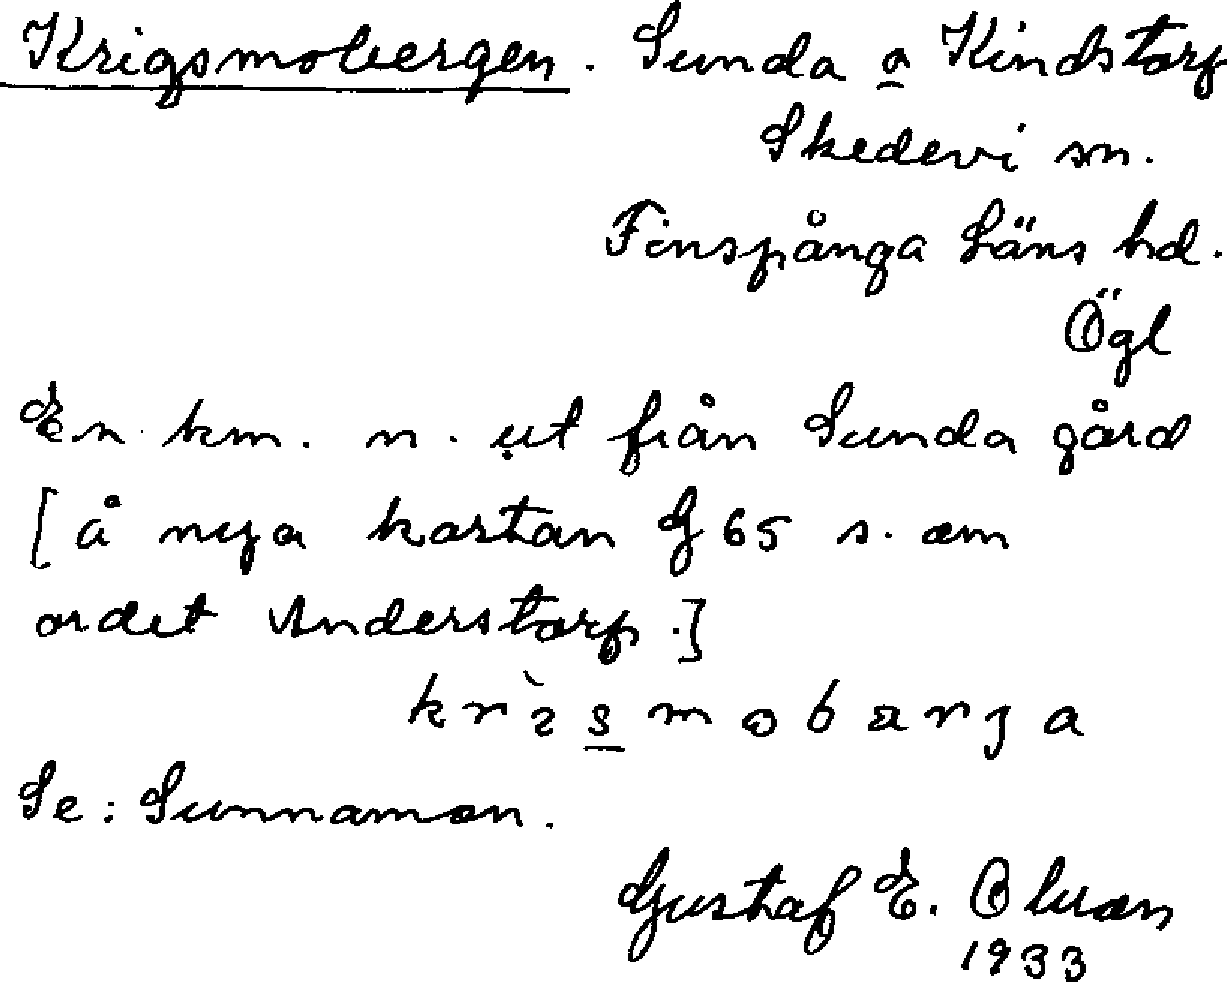 Krigsmobergen. Sunda o Kindstorp
Skedevi sn.
Finspånga Läns hd.
Ögl
En km. n. ut från Sunda gård
[å nya kartan G 65 s. om
ordet Understorp.]
Se: Sunnamon.
Gustaf E. Olsson
1933